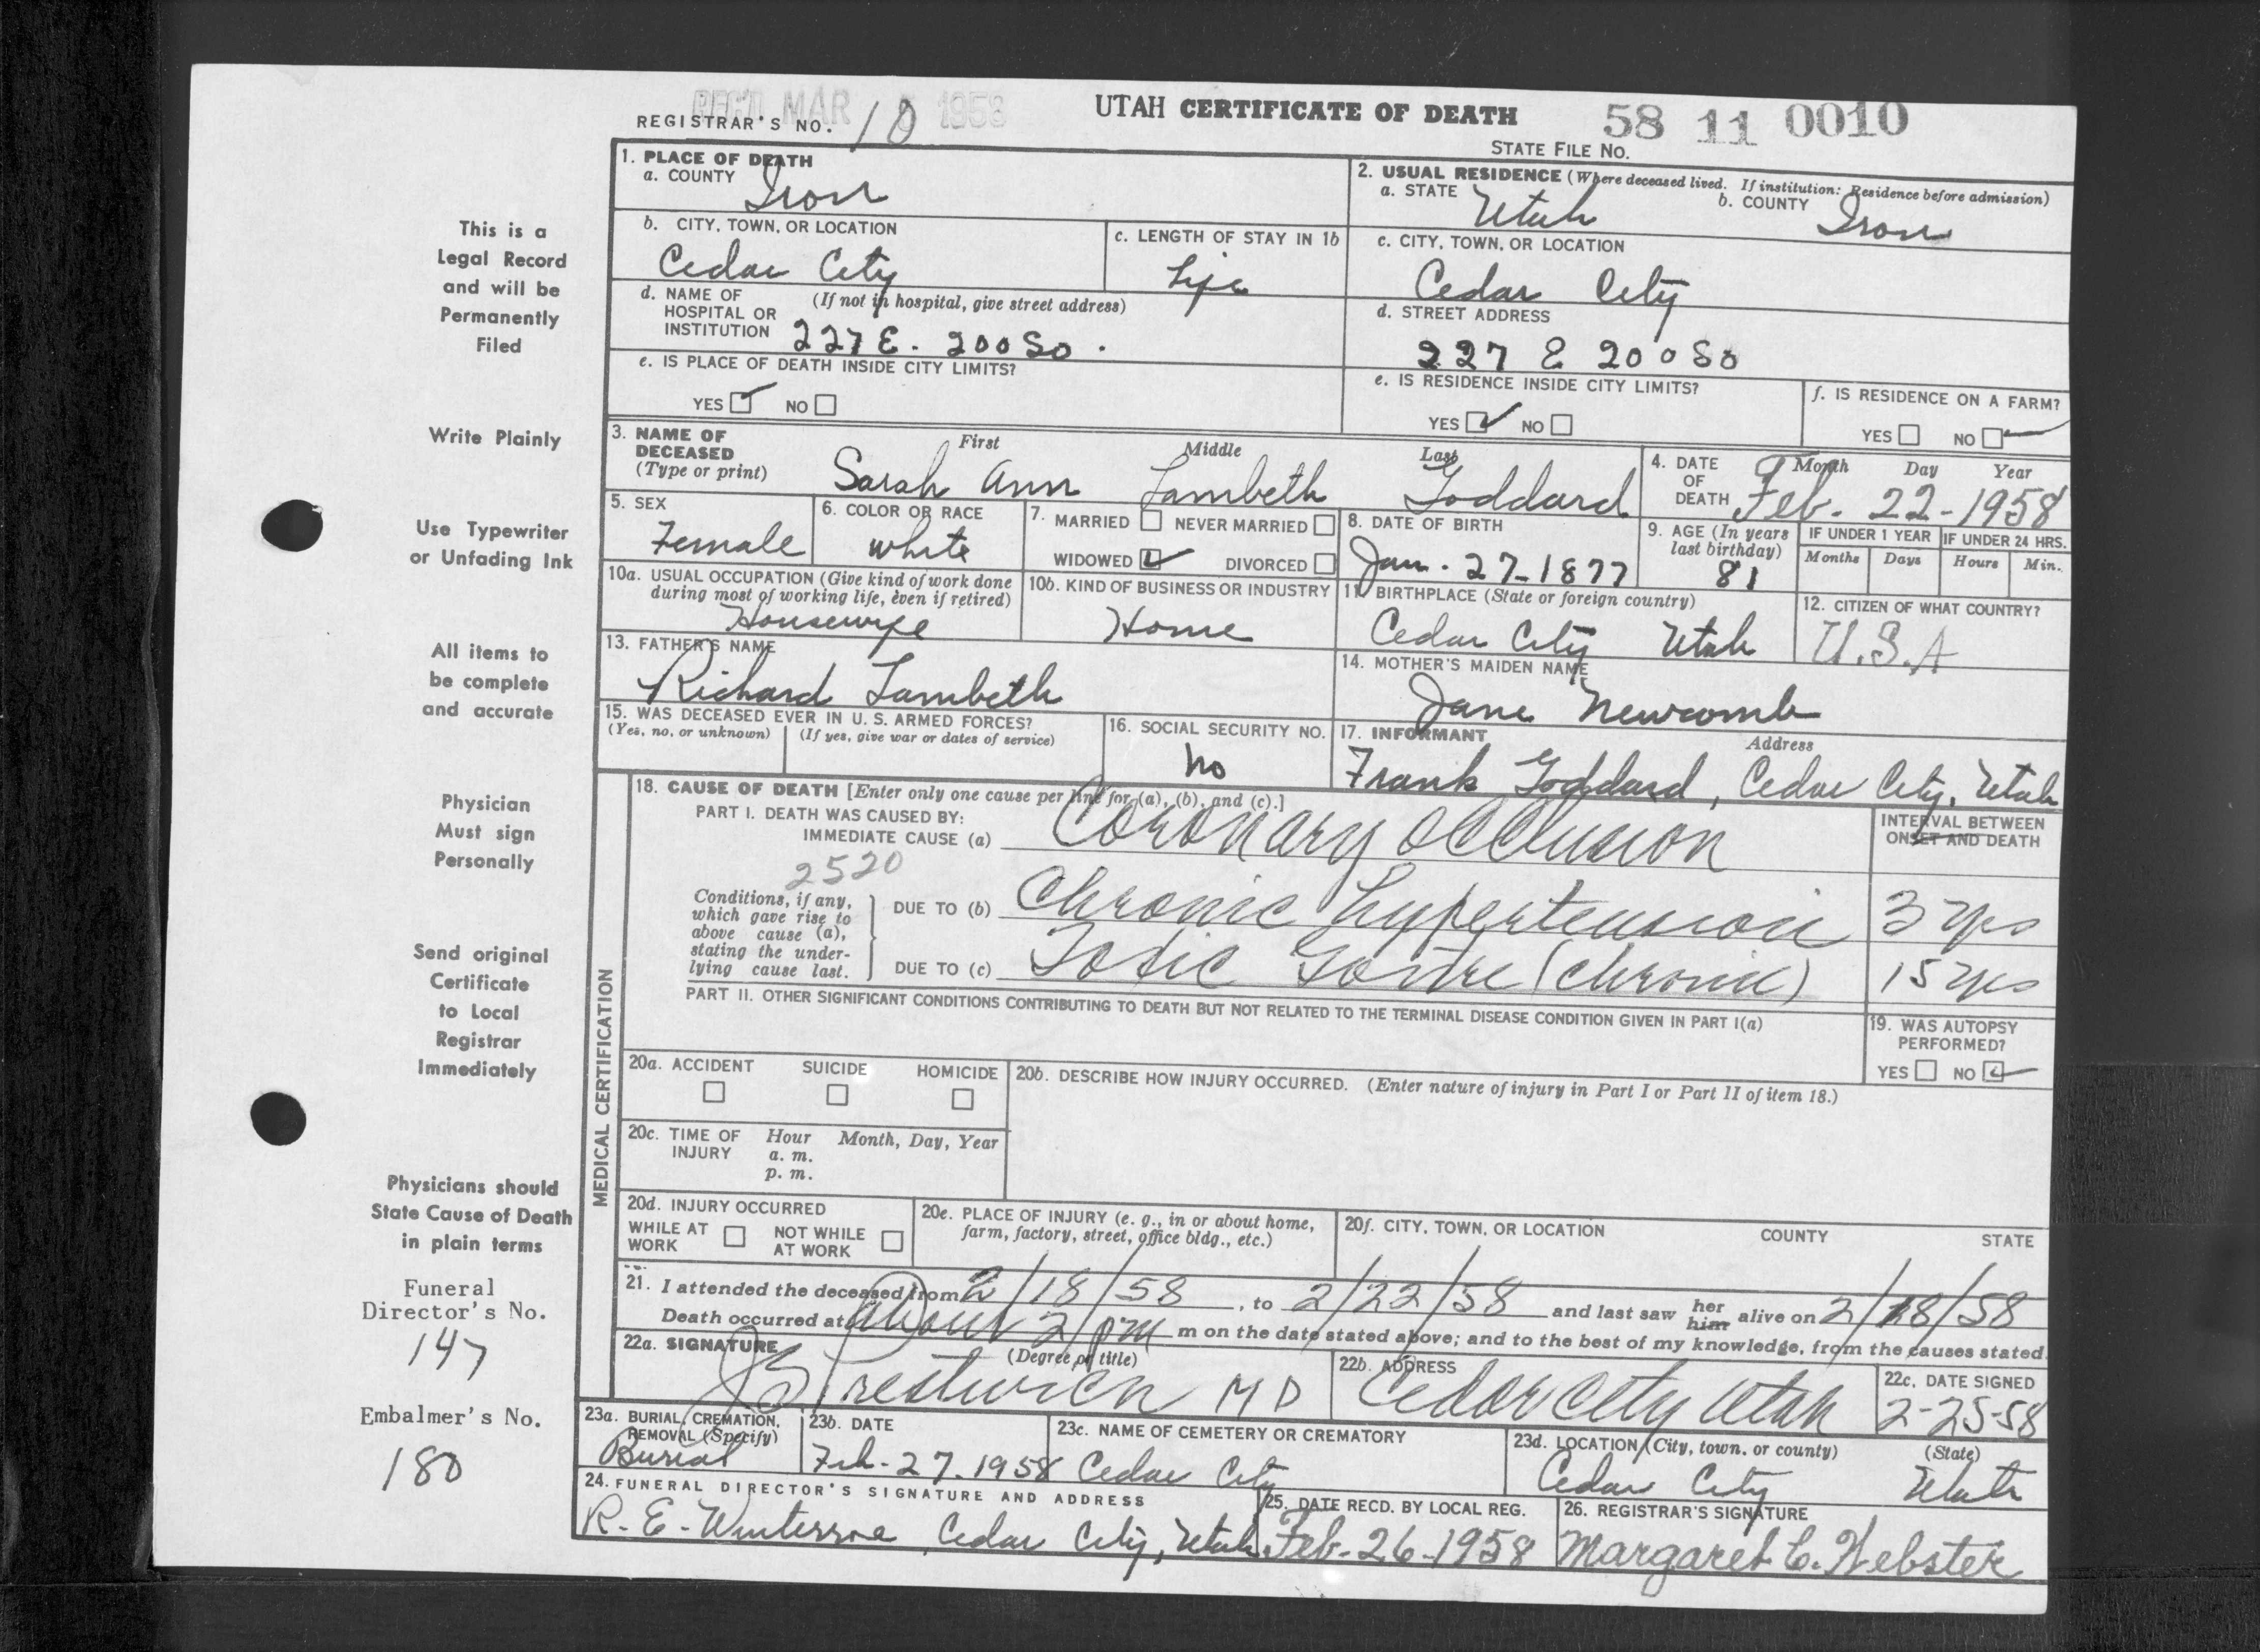 REC'D MAR 5 1958
UTAH CERTIFICATE OF DEATH
58 11 0010
REGISTRAR'S NO. 10
STATE FILE NO.
1. PLACE OF DEATH
a. COUNTY Iron
2. USUAL RESIDENCE (Where deceased lived. If institution: Residence before admission)
a. STATE Utah b. COUNTY Iron
b. CITY, TOWN, OR LOCATION Cedar City
c. LENGTH OF STAY IN 1b Life
c. CITY, TOWN, OR LOCATION Cedar City
d. NAME OF HOSPITAL OR INSTITUTION (If not in hospital, give street address)
227 E. 200 So.
d. STREET ADDRESS
227 E 200 So
e. IS PLACE OF DEATH INSIDE CITY LIMITS?
YES ✓ NO
e. IS RESIDENCE INSIDE CITY LIMITS?
YES ✓ NO
f. IS RESIDENCE ON A FARM?
YES NO ✓
3. NAME OF DECEASED (Type or print)
First Middle Last
Sarah Ann Lambeth Goddard
4. DATE OF DEATH Month Day Year
Feb. 22-1958
5. SEX
Female
6. COLOR OR RACE
white
7. MARRIED NEVER MARRIED
WIDOWED ✓ DIVORCED
8. DATE OF BIRTH
Jan. 27-1877
9. AGE (In years last birthday)
81
IF UNDER 1 YEAR
Months Days
IF UNDER 24 HRS.
Hours Min.
10a. USUAL OCCUPATION (Give kind of work done during most of working life, even if retired)
Housewife
10b. KIND OF BUSINESS OR INDUSTRY
Home
11. BIRTHPLACE (State or foreign country)
Cedar City Utah
12. CITIZEN OF WHAT COUNTRY?
U.S.A
13. FATHER'S NAME
Richard Lambeth
14. MOTHER'S MAIDEN NAME
Jane Newcomb
15. WAS DECEASED EVER IN U. S. ARMED FORCES?
(Yes, no, or unknown) (If yes, give war or dates of service)
16. SOCIAL SECURITY NO.
No
17. INFORMANT Address
Frank Goddard, Cedar City, Utah
MEDICAL CERTIFICATION
18. CAUSE OF DEATH [Enter only one cause per line for (a), (b), and (c).]
PART I. DEATH WAS CAUSED BY:
IMMEDIATE CAUSE (a) Coronary occlusion
INTERVAL BETWEEN ONSET AND DEATH
2520
Conditions, if any, which gave rise to above cause (a), stating the underlying cause last.
DUE TO (b) Chronic hypertension 3 yrs
DUE TO (c) Toxic Goitre (chronic) 15 yrs
PART II. OTHER SIGNIFICANT CONDITIONS CONTRIBUTING TO DEATH BUT NOT RELATED TO THE TERMINAL DISEASE CONDITION GIVEN IN PART I(a)
19. WAS AUTOPSY PERFORMED?
YES NO ✓
20a. ACCIDENT SUICIDE HOMICIDE
20b. DESCRIBE HOW INJURY OCCURRED. (Enter nature of injury in Part I or Part II of item 18.)
20c. TIME OF INJURY Hour Month, Day, Year
a. m.
p. m.
20d. INJURY OCCURRED
WHILE AT WORK NOT WHILE AT WORK
20e. PLACE OF INJURY (e. g., in or about home, farm, factory, street, office bldg., etc.)
20f. CITY, TOWN, OR LOCATION COUNTY STATE
21. I attended the deceased from 2/18/58, to 2/22/58 and last saw her him alive on 2/18/58
Death occurred at about 2 pm m on the date stated above; and to the best of my knowledge, from the causes stated.
22a. SIGNATURE (Degree or title)
Prestwich MD
22b. ADDRESS
Cedar City Utah
22c. DATE SIGNED
2-25-58
23a. BURIAL, CREMATION, REMOVAL (Specify)
Burial
23b. DATE
Feb. 27. 1958
23c. NAME OF CEMETERY OR CREMATORY
Cedar City
23d. LOCATION (City, town, or county) (State)
Cedar City Utah
24. FUNERAL DIRECTOR'S SIGNATURE AND ADDRESS
R. E. Winterrose, Cedar City, Utah.
25. DATE RECD. BY LOCAL REG.
Feb. 26-1958
26. REGISTRAR'S SIGNATURE
Margaret C. Webster
This is a
Legal Record
and will be
Permanently
Filed
Write Plainly
Use Typewriter
or Unfading Ink
All items to
be complete
and accurate
Physician
Must sign
Personally
Send original
Certificate
to Local
Registrar
Immediately
Physicians should
State Cause of Death
in plain terms
Funeral
Director's No.
147
Embalmer's No.
180